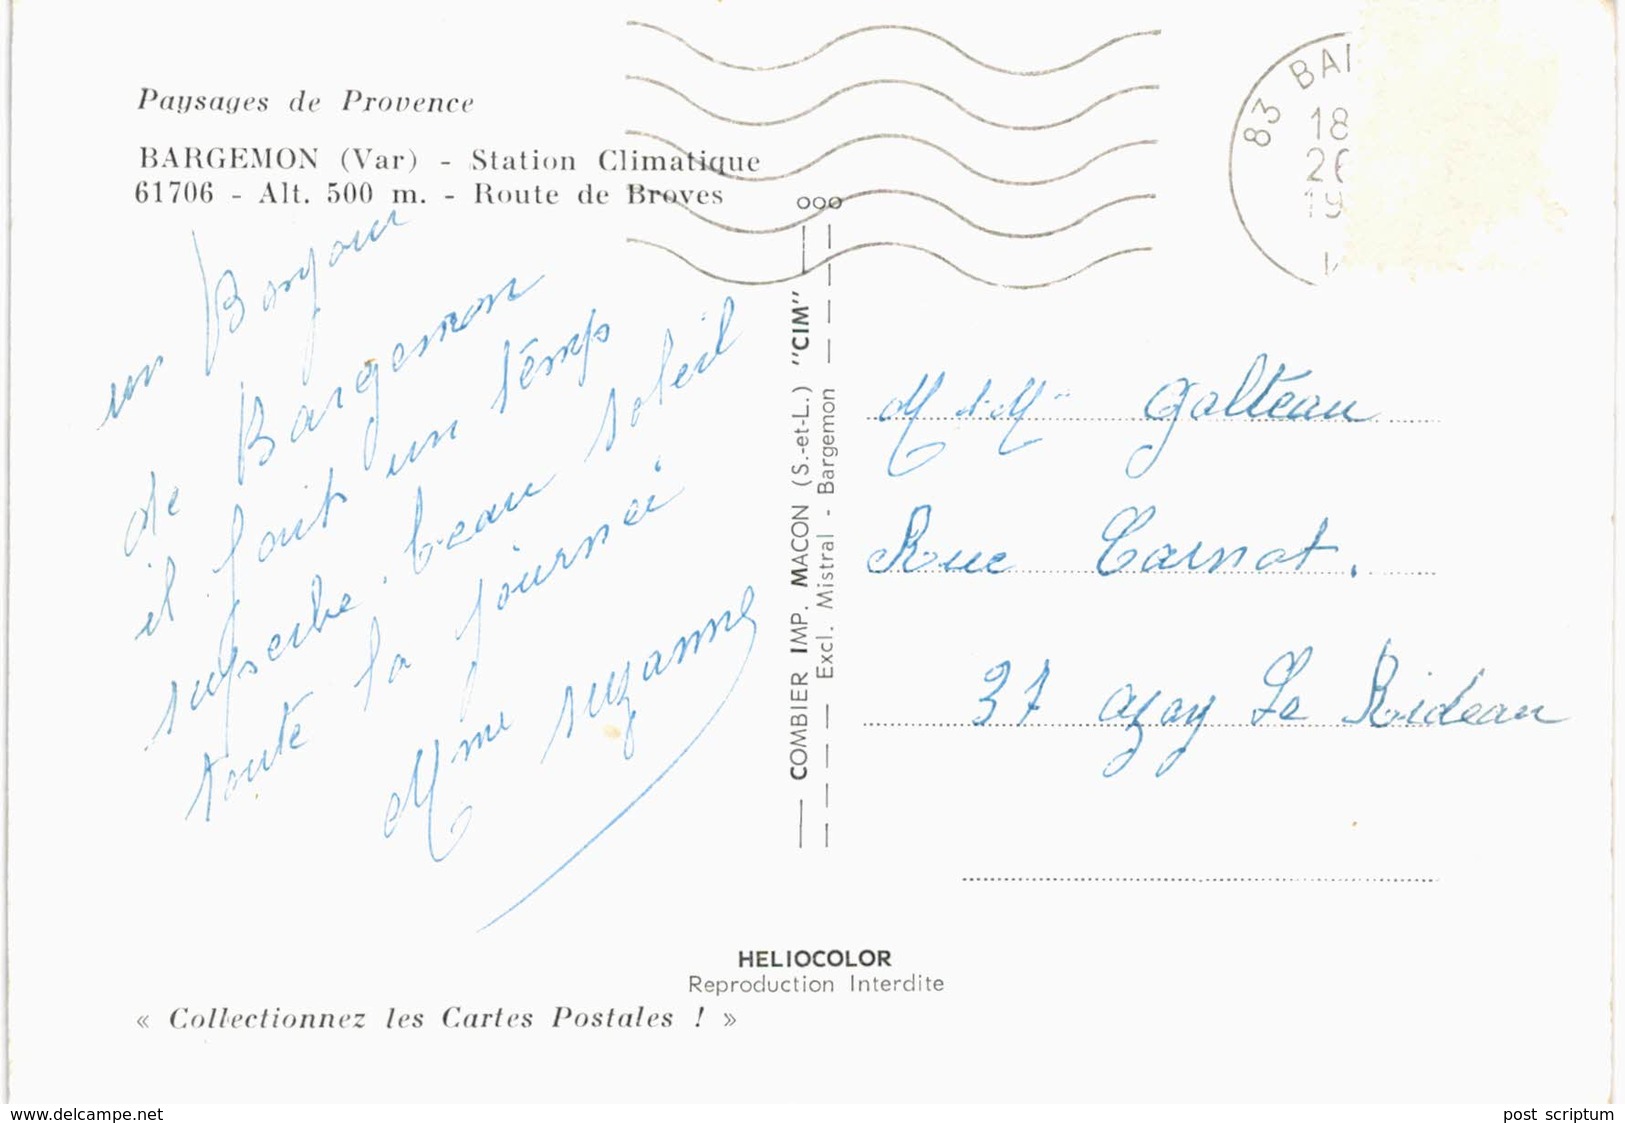 Paysages de Provence
BARGEMON (Var) - Station Climatique
61706 - Alt. 500 m. - Route de Broves
un Bonjour
de Bargemon
il fait un temps
superbe. beau soleil
toute la journeé
Mme Suzanne
83 BA
18
26
19
M et Mme Galteau
Rue Carnot.
37 Azay Le Rideau
COMBIER IMP. MACON (S.-et-L.) "CIM"
Excl. Mistral - Bargemon
HELIOCOLOR
Reproduction Interdite
« Collectionnez les Cartes Postales ! »
www.delcampe.net
post scriptum